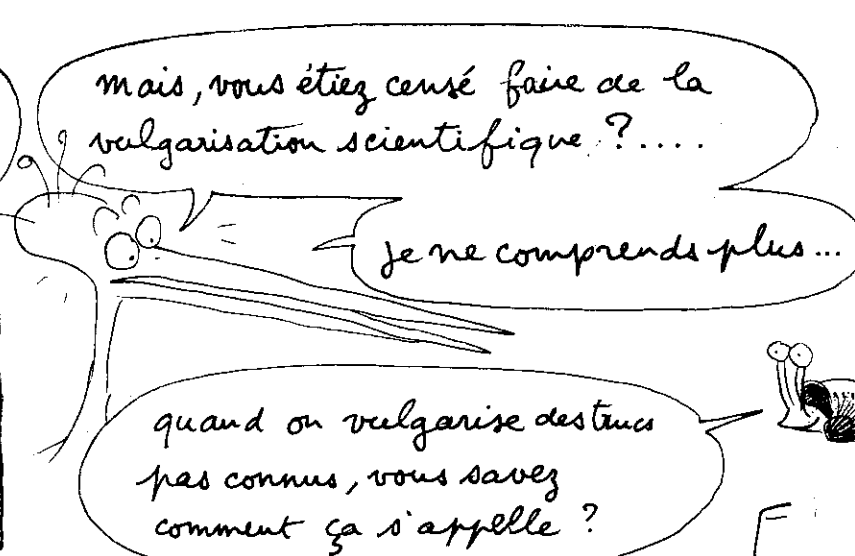 mais, vous étiez censé faire de la
vulgarisation scientifique ?....
Je ne comprends plus...
quand on vulgarise des trucs
pas connus, vous savez
comment ça s'appelle ?